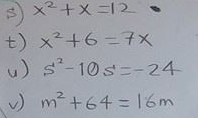 s) x² + x = 12
t) x² + 6 = 7x
u) s² - 10s = -24
v) m² + 64 = 16m